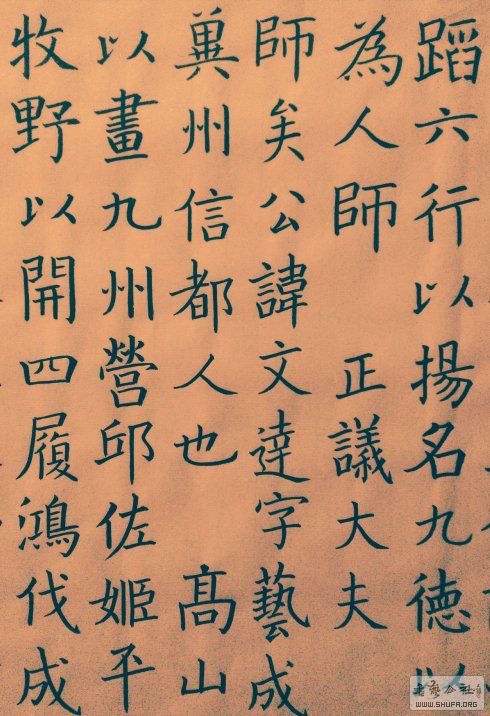 蹈六行以揚名九德以
為人師 正議大夫
師矣公諱文達字藝成
冀州信都人也 髙山
以畫九州營邱佐姬平
牧野以開四履鴻伐成
書藝公社
WWW.SHUFA.ORG